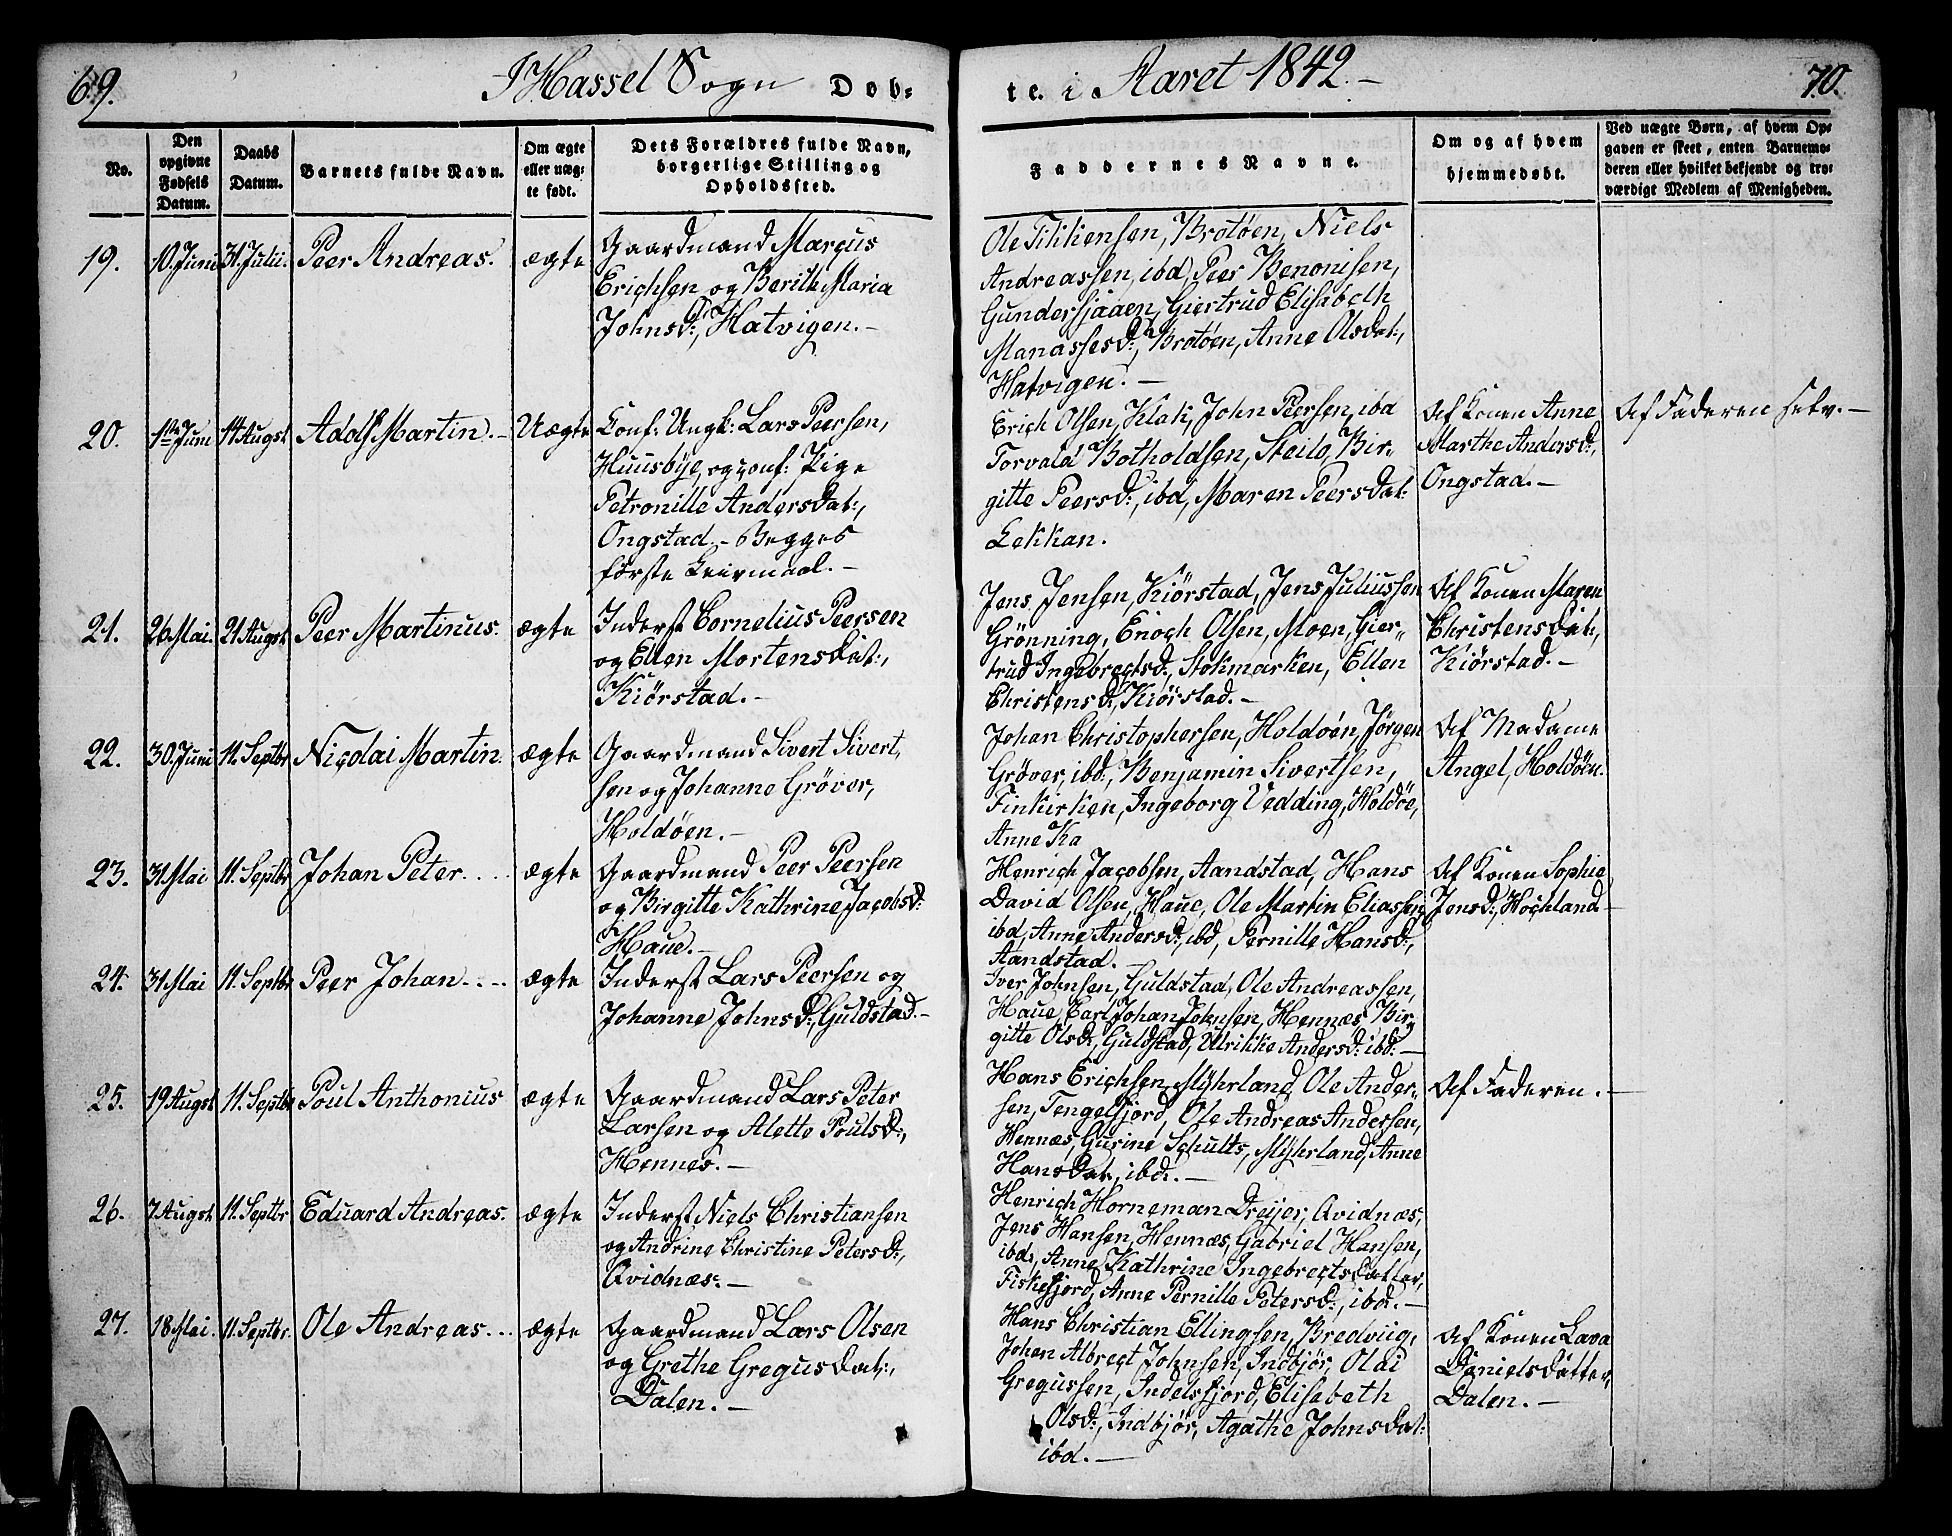 69.
I Hassel Sogn Døb-
te. i Aaret 1842.-
70.
No.
Den
opgivne
Fødsels
Datum.
Daabs
Datum.
Barnets fulde Navn.
Om ægte
eller uæg-
te født.
Dets Forældres fulde Navn,
borgerlige Stilling og
Opholdssted.
Faddernes Navne.
Om og af hvem
hjemmedøbt.
Ved uægte Børn, af hvem Op-
gaven er skeet, enten Barnemo-
deren eller hvilket bekjendt og tro-
værdigt Medlem af Menigheden.
19.
10. Juni
31. Julii.
Peer Andreas.
ægte
Gaardmand Marcus
Erichsen og Berith Maria
Johnsd:, Hatvigen.-
Ole Tikkensen, Brotøen, Niels
Andreassen, ibd, Peer Benonisen,
Gundersjaaen, Giertrud Elisabeth
Manassesd:, Brotøen, Anne Olsdat:,
Hatvigen.-
20.
1ste Juni
14 Augst
Adolf Martin.-
Uægte
Conf: Ungk: Lars Peersen,
Huusbye, og conf: Pige
Petronille Andersdat:,
Ongstad.- Begges
første Leiermaal.-
Erich Olsen, Klak, John Peersen, ibd
Torvald Botholdsen, Steilo, Bir-
gitte Peersd:, ibd, Maren Peersdat:
Lekkan.
Af Konen Anne
Marthe Andersd:,
Ongstad.-
Af Faderen selv.-
21.
26 Mai.
21 Augst
Peer Martinus.
ægte
Inderst Cornelius Peersen
og Ellen Mortensdat:,
Kiørstad.-
Jens Jensen, Kiørstad, Jens Juliussen
Grønning, Enoch Olsen, Moen, Gier-
trud Ingebrectsd:, Stokmarken, Ellen
Christensd:, Kiørstad.-
Af Konen Maren
Christensdat:,
Kiørstad.-
22.
30. Juni
11. Septbr
Nicolai Martin.
ægte
Gaardmand Sivert Sivert-
sen og Johanne Grøver,
Holdøen.-
Johan Christophersen, Holdøen, Jørgen
Grøver, ibd:, Benjamin Sivertsen,
Finkirken, Ingeborg Vedding, Holdøe,
Anne Ka
Af Madame
Angel, Holdøen.
23.
31 Mai
11. Septbr
Johan Peter....
ægte
Gaardmand Peer Peersen
og Birgitte Kathrine Jacobsd:
Haue.-
Henrich Jacobsen, Aandstad, Hans
David Olsen, Haue, Ole Martin Eliassen,
ibd, Anne Andersd:, ibd, Pernille Hansd:,
Aandstad.-
Af Konen Sophie
Jensd:, Hochland-
24.
31 Mai
11. Septbr
Peer Johan....
ægte
Inderst Lars Peersen og
Johanne Johnsd:, Guldstad.-
Iver Johnsen, Guldstad, Ole Andreassen,
Haue, Carl Johan Johnsen, Hennæs, Bir-
gitte Olsd:, Guldstad, Ulrikke Andersd: ibd:-
25.
19 Augst
11. Septbr
Poul Anthonius
ægte
Gaardmand Lars Peter
Larsen og Alette Poulsd:,
Hennes.-
Hans Erichsen, Myhrland, Ole Ander-
sen, Tengelfjord, Ole Andreas Andersen,
Hennæs, Gurine Schults, Myhrland, Anne
Hansdat:, ibd:.-
Af Faderen.-
26.
7 Augst
11. Septbr
Eduard Andreas.
ægte
Inderst Niels Christiansen
og Andrine Christine Petersd:,
Qvidnæs.-
Henrich Horneman Dreijer, Qvidnæs,
Jens Hansen, Hennæs, Gabriel Hansen,
ibd:, Anne Kathrine Ingebrectsdatter,
Fiskefjord, Anne Pernille Petersd:, ibd.-
27.
18 Mai.
11. Septbr.
Ole Andreas...
ægte
Gaardmand Lars Olsen
og Grethe Gregusdat:,
Dalen.-
Hans Christian Ellingsen, Bredviig,
Johan Albrect Johnsen, Indbjør, Olai
Gregussen, Indelsfjord, Elisabeth
Olsd:, Indbjør, Agathe Johnsdat:
ibd.-
Af Konen Lava
Danielsdatter,
Dalen.-